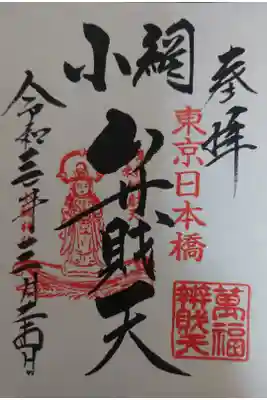 奉拝
東京日本橋
萬福
辨財天
小網
弁財天
令和三年